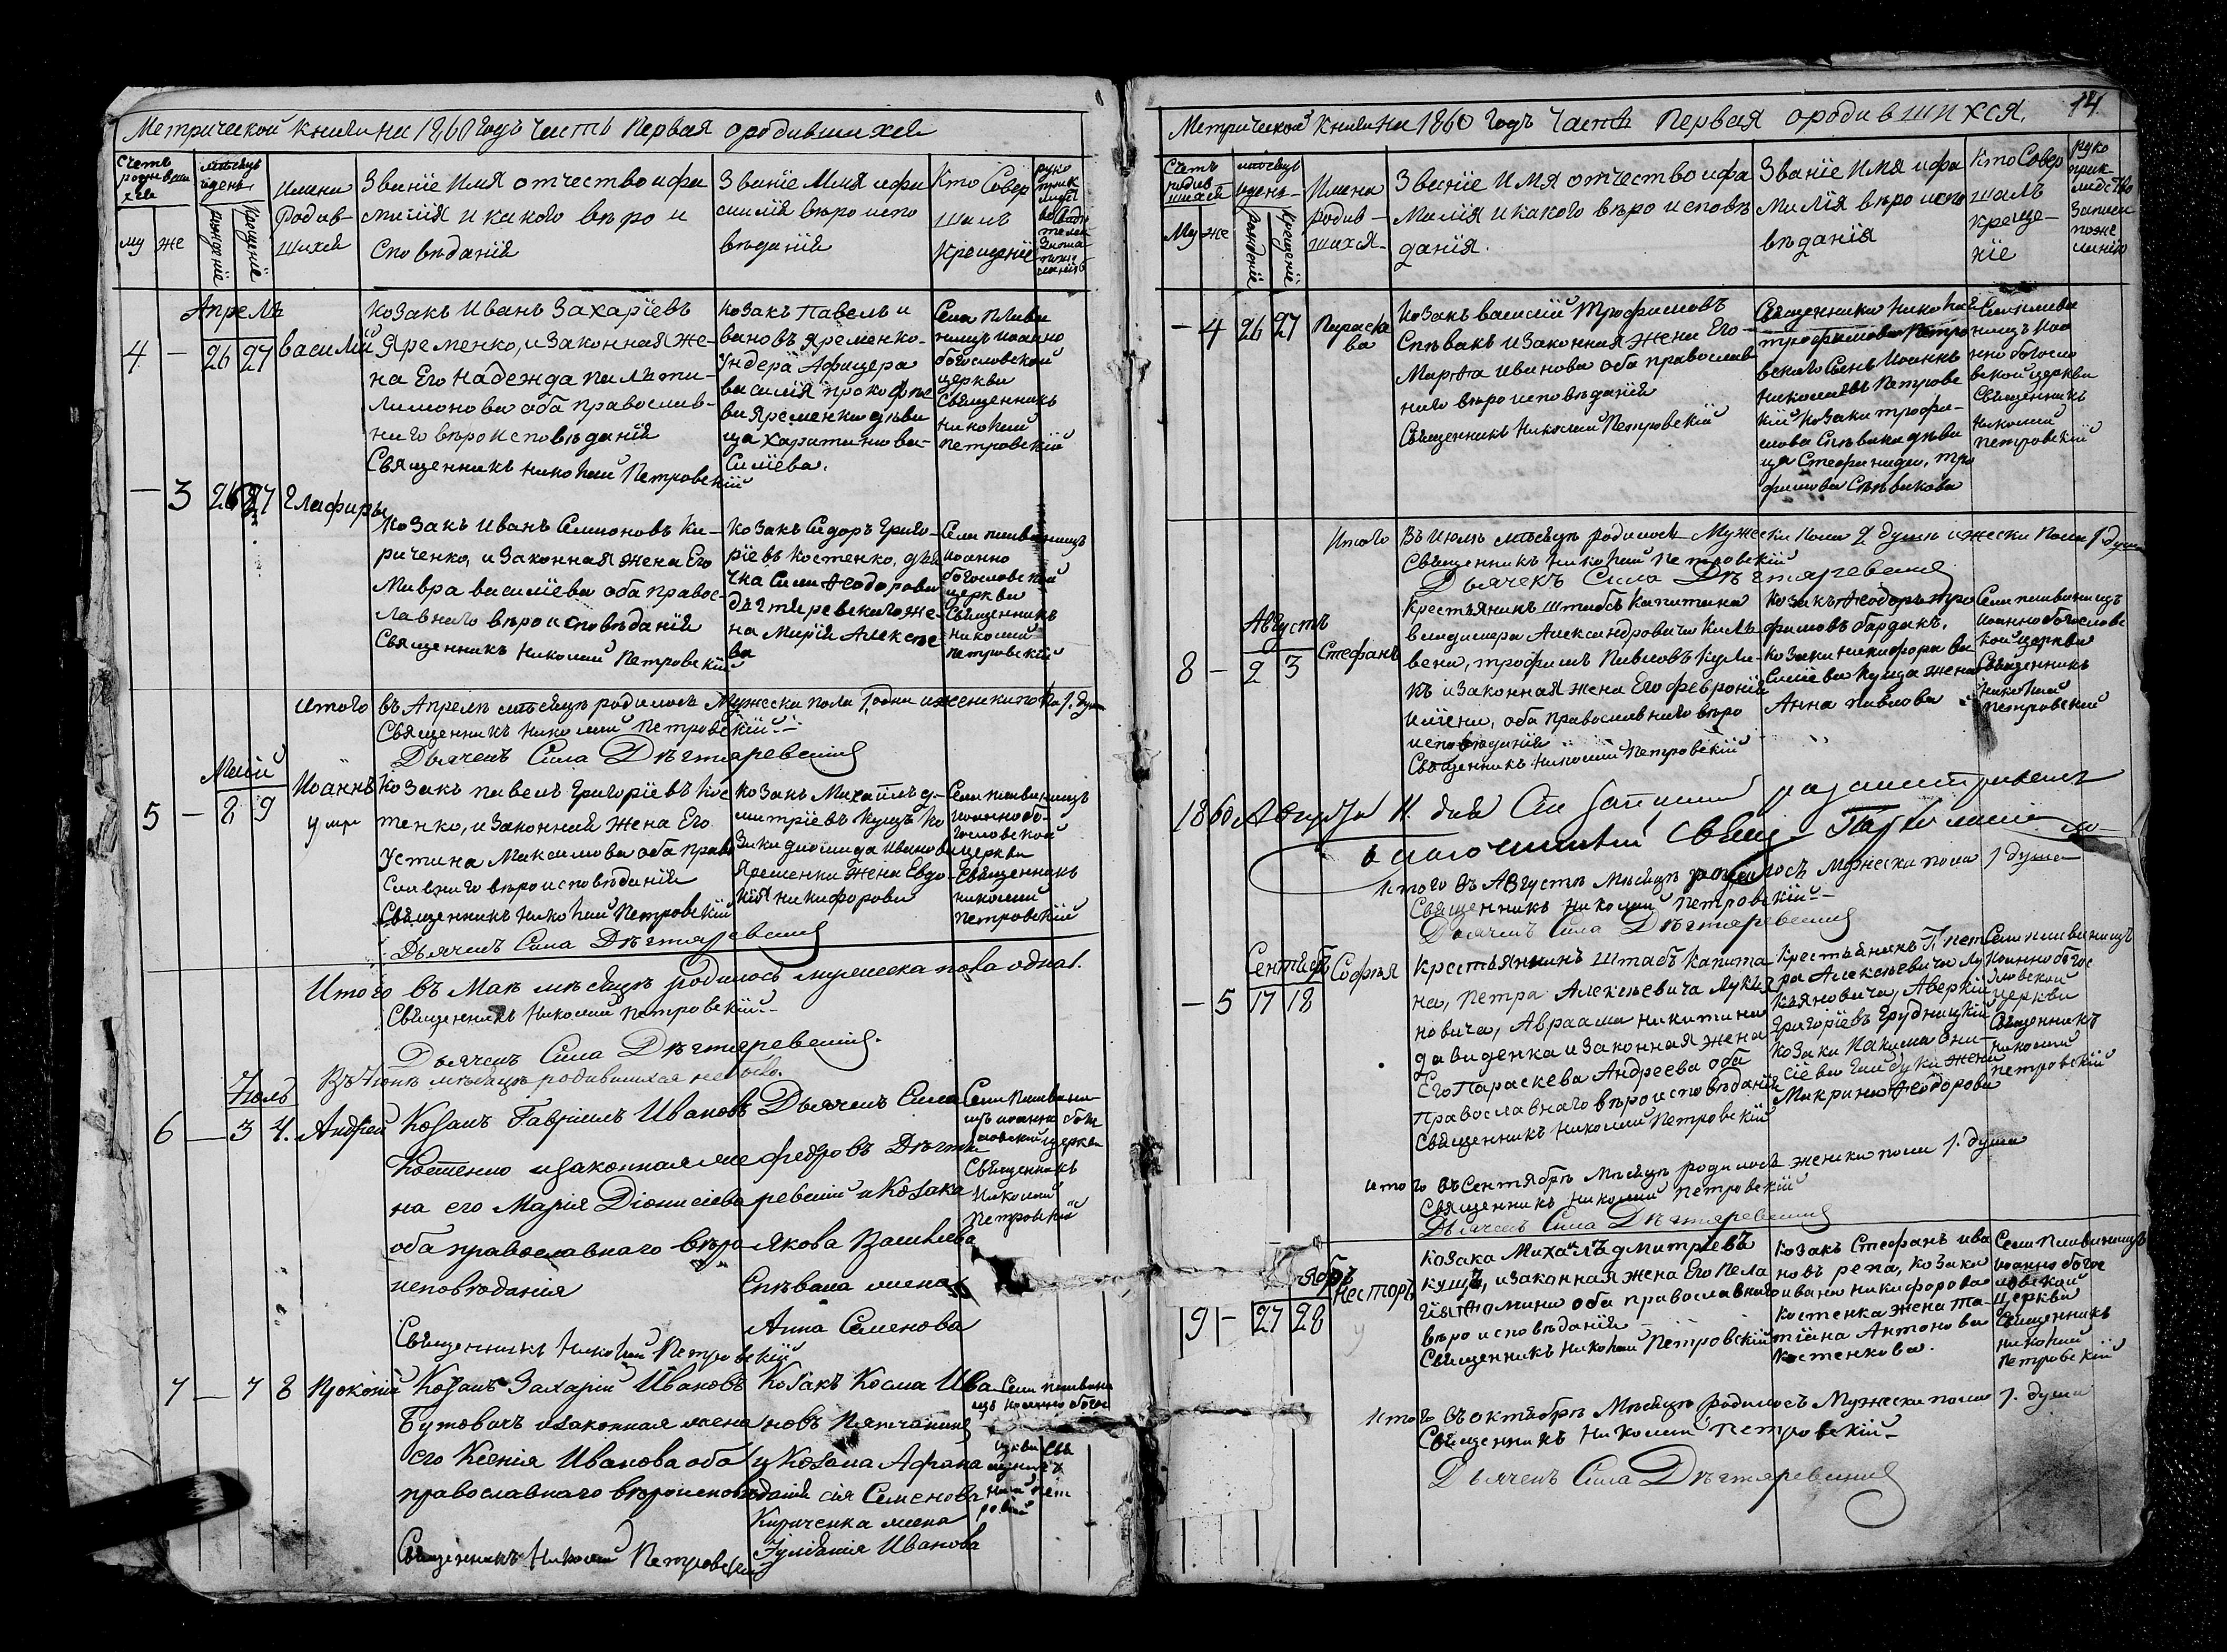 Метрической книги на 1860 годъ часть Первая ородившихся
Счетъ родивши хся
му же
мѣсяцъ и день
рожденіе
крещеніе
Имена Родив- шихся
Званіе Имя отчество и фа
милія и какого вѣро и
сповѣданія
Званіе Имя и фа
милія вѣро испо
вѣданія
Кто Совер
шалъ
Крещеніе
Апрель
4 - 26 27 василій
козакъ Иванъ Захаріевъ
Яременко, и Законная же-
на Его надежда
лимонова оба православ-
наго вѣроисповѣданія
Священникъ николай Петровскій
козакъ павелъ и
вановъ Яременко-
Ундера Афицера
василія прокофіе
ва яременка дѣви
ца харитина ва-
силіева.
Села пливи
ницъ иоанно
богословской
церкви
Священникъ
николай
петровскій
- 3 26 27 Глафиры
козакъ иванъ Симионовъ Ки-
риченко, и Законная жена Его
Мавра василіева оба правос-
лавнаго вѣроисповѣданія
Священникъ николай Петровскій
козакъ Сидоръ Григо-
ріевъ костенко, дья
чка Силы Ѳеодорова
дѣгтяревскаго же-
на Марія Алексѣе
ва
Села пливиницъ
иоанно
богословской
церкви
Священникъ
николай
петровскій
итого въ Апрелѣ мѣсяцѣ родилось Мужеска пола 1. одна и женска пола 1. душа
Священникъ николай петровскій
Дьячекъ Сила Дѣгтяревскій
Маій
5 - 8 9 Иоаннъ
умре
козакъ павелъ григоріевъ кос
тенко, и законная жена Его
Устина Максимова оба право
славнаго вѣроисповѣданія
Священникъ николай Петровскій
Дьячекъ Сила Дѣгтяревскій
козакъ Михаилъ д-
митріевъ Куцъ ко
зака диомида иванова
Яременка жена Евдо-
кія никифорова
Села пливиницъ
иоанно бо-
гословской
церкви
Священникъ
николай
петровскій
Итого въ Маѣ мѣсяцѣ родилось мужеска пола одна 1.
Священникъ николай петровскій
Дьячекъ Сила Дѣгтяревскій.
Въ Іюнѣ мѣсяцѣ родившихся не было.
Іюль
6 — 3 4. Андрей
Козакъ Гавріилъ Ивановъ
Костенко и законная же
на его Марія Діонисіева
оба православнаго вѣро
исповѣданія
Священникъ Николай Петровскій
Дьячекъ Сила
Федоровъ Дѣгтя
ревскій и Козака
Якова Васильева
Спѣвака жена
Анна Семенова
Села пливини
цъ иоанно бого
словской церкви
Священникъ
Николай
Петровскій
7 — 7 8 Прокопій
Козакъ Захарій Ивановъ
Бутовичъ и законная жена
его Ксенія Иванова оба
православнаго вѣроисповѣданія
Священникъ Николай Петровскій
Козакъ Косма Ива
новъ Пятчанинъ
и Козака Афана
сія Семенова
Кириченка жена
Іуліанія Иванова
Села пливини
цъ иоанно богос
церкви Свя
щенникъ
Ник Пет
ровскій
14
Метрической книги на 1860 годъ Часть Первая ородившихся.
Счетъ родив шихся
Му же
мѣсяцъ и день
рожденіе
Крещеніе
Имена родив- шихся
Званіе Имя отчество и фа
милія и какого вѣро исповѣ
данія.
Званіе Имя и фа
милія вѣро испо
вѣданія
Кто Совер
шалъ
креще-
ніе
руко
прик-
ладство
записи
поже
ланію
- 4 26 27 Параске
ва
козакъ василій Трофимовъ
Спѣвакъ и Законная жена Его
Марѳа иванова оба православ
наго вѣроисповѣданія
Священникъ николай Петровскій
Священника николая
трофимова Петро
вскаго Сынъ Иоаннъ
николаевъ Петровс
кій козака трофи-
мова Спѣвака дѣви
ца Стефанида, тро
фимова Спѣвакова
Села пливи
ницъ иоа
нно богосло
вской церкви
Священникъ
николай
петровскій
Итого Въ Июлѣ мѣсяцѣ родилось Мужеска пола 2 души и женска пола 1 душа
Священникъ николай Петровскій
Дьячекъ Сила Дѣгтяревскій
Августъ
8 - 2 3 Стефанъ
крестьянинъ штабсъ капитана
владимера Александровича
трофимъ Павловъ
и законная жена Его феврония
оба православнаго вѣро
исповѣданія
Священникъ николай Петровскій
козакъ Ѳеодоръ тро
фимовъ бардакъ,
козака никифора ва
силіева куцда жена
Анна павлова
Села пливиницъ
иоанно богословс
кой церкви
Священникъ
николай
петровскій
1860 Августа 11. дня Сіи записи
благочинный Свящ.
итого въ Августѣ мѣсяцѣ родилось мужеска пола 1 душа
Священникъ николай петровскій
Дьячекъ Сила Дѣгтяревскій
Сентяб
- 5 17 18 Софья
крестьянинъ штабъ капита
на, петра Алексѣевича Лукія
новича, Авраамъ никитинъ
давиденка и законная жена
Его Параскева Андреева оба
православнаго вѣроисповѣданія
Священникъ Николай Петровскій
крестьянинъ Г. пет
ра Алексѣевича Лу
кьяновича, Аверкій
григоріевъ грудницкій
козака Иакима они-
сіева гайдука жена
Макрина Ѳеодорова
Села пливиницъ
иоанно богос
ловской
церкви
Священникъ
николай
петровскій
итого въ Сентябрѣ мѣсяцѣ родилось женска пола 1. душа
Священникъ николай петровскій
Дьячекъ Сила Дѣгтяревскій
ябрь
9 - 27 28 Несторъ
козака Михаилъ дмитріевъ
куцъ, и законная жена Его Пела
гія Ѳомина оба православнаго
вѣроисповѣданія
Священникъ николай Петровскій
козакъ Стефанъ ива
новъ репа, козака
ивана никифорова
костенка жена та-
тіана Антонова
костенкова.
Села пливиницъ
иоанно богос
ловской
церкви
Священникъ
николай
петровскій
итого въ октябрѣ мѣсяцѣ родилось Мужеска пола 1. душа
Священникъ николай петровскій
Дьячекъ Сила Дѣгтяревскій